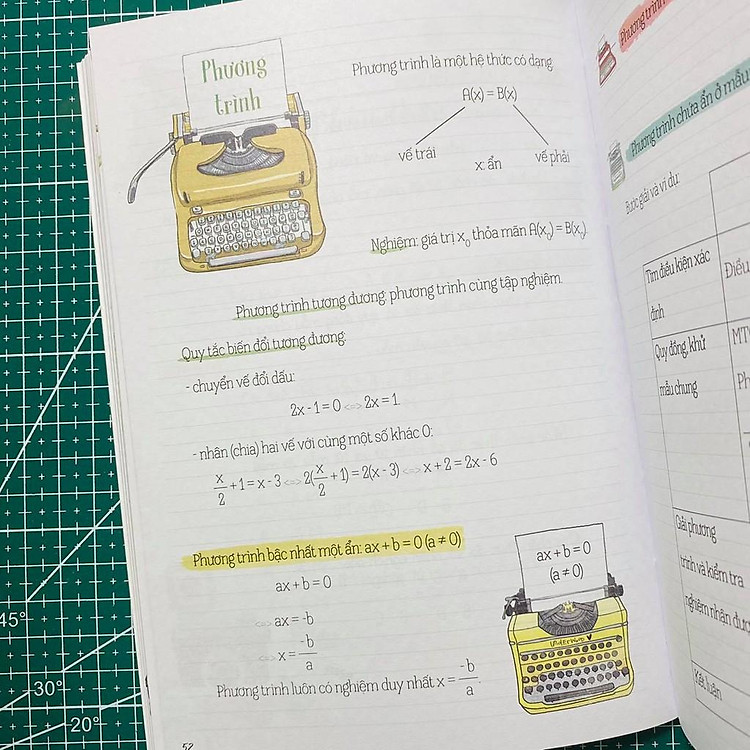 Phương
trình
Phương trình là một hệ thức có dạng
A(x) = B(x)
vế trái
x: ẩn
vế phải
Nghiệm: giá trị x₀ thỏa mãn A(x₀) = B(x₀).
Phương trình tương đương: phương trình cùng tập nghiệm.
Quy tắc biến đổi tương đương:
- chuyển vế đổi dấu:
2x - 1 = 0 <=> 2x = 1
- nhân (chia) hai vế với cùng một số khác 0:
x/2 + 1 = x - 3 <=> 2(x/2 + 1) = 2(x - 3) <=> x + 2 = 2x - 6
Phương trình bậc nhất một ẩn: ax + b = 0 (a ≠ 0)
ax + b = 0
<=> ax = -b
<=> x = -b/a
Phương trình luôn có nghiệm duy nhất x = -b/a.
ax + b = 0
(a ≠ 0)
Underwood
52
Phương trình
Phương trình chứa ẩn ở mẫu
Bước giải và ví dụ:
Tìm điều kiện xác
định
Điều
Quy đồng, khử
mẫu chung
MT
Ph
Giải phương
trình và kiểm tra
nghiệm nhận đượ
Kết luận
45°
30°
20°